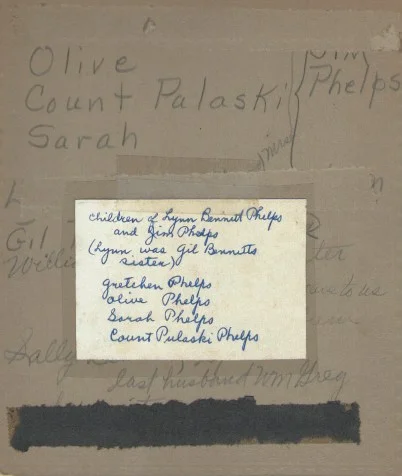 Olive
Count Palaski
Sarah
Jim
Phelps
children of Lynn Bennett Phelps
and Jim Phelps
(Lynn was Gil Bennetts
sister)
Gretchen Phelps
Olive Phelps
Sarah Phelps
Count Pulaski Phelps
Gil
Sally
last husband Wm Greg